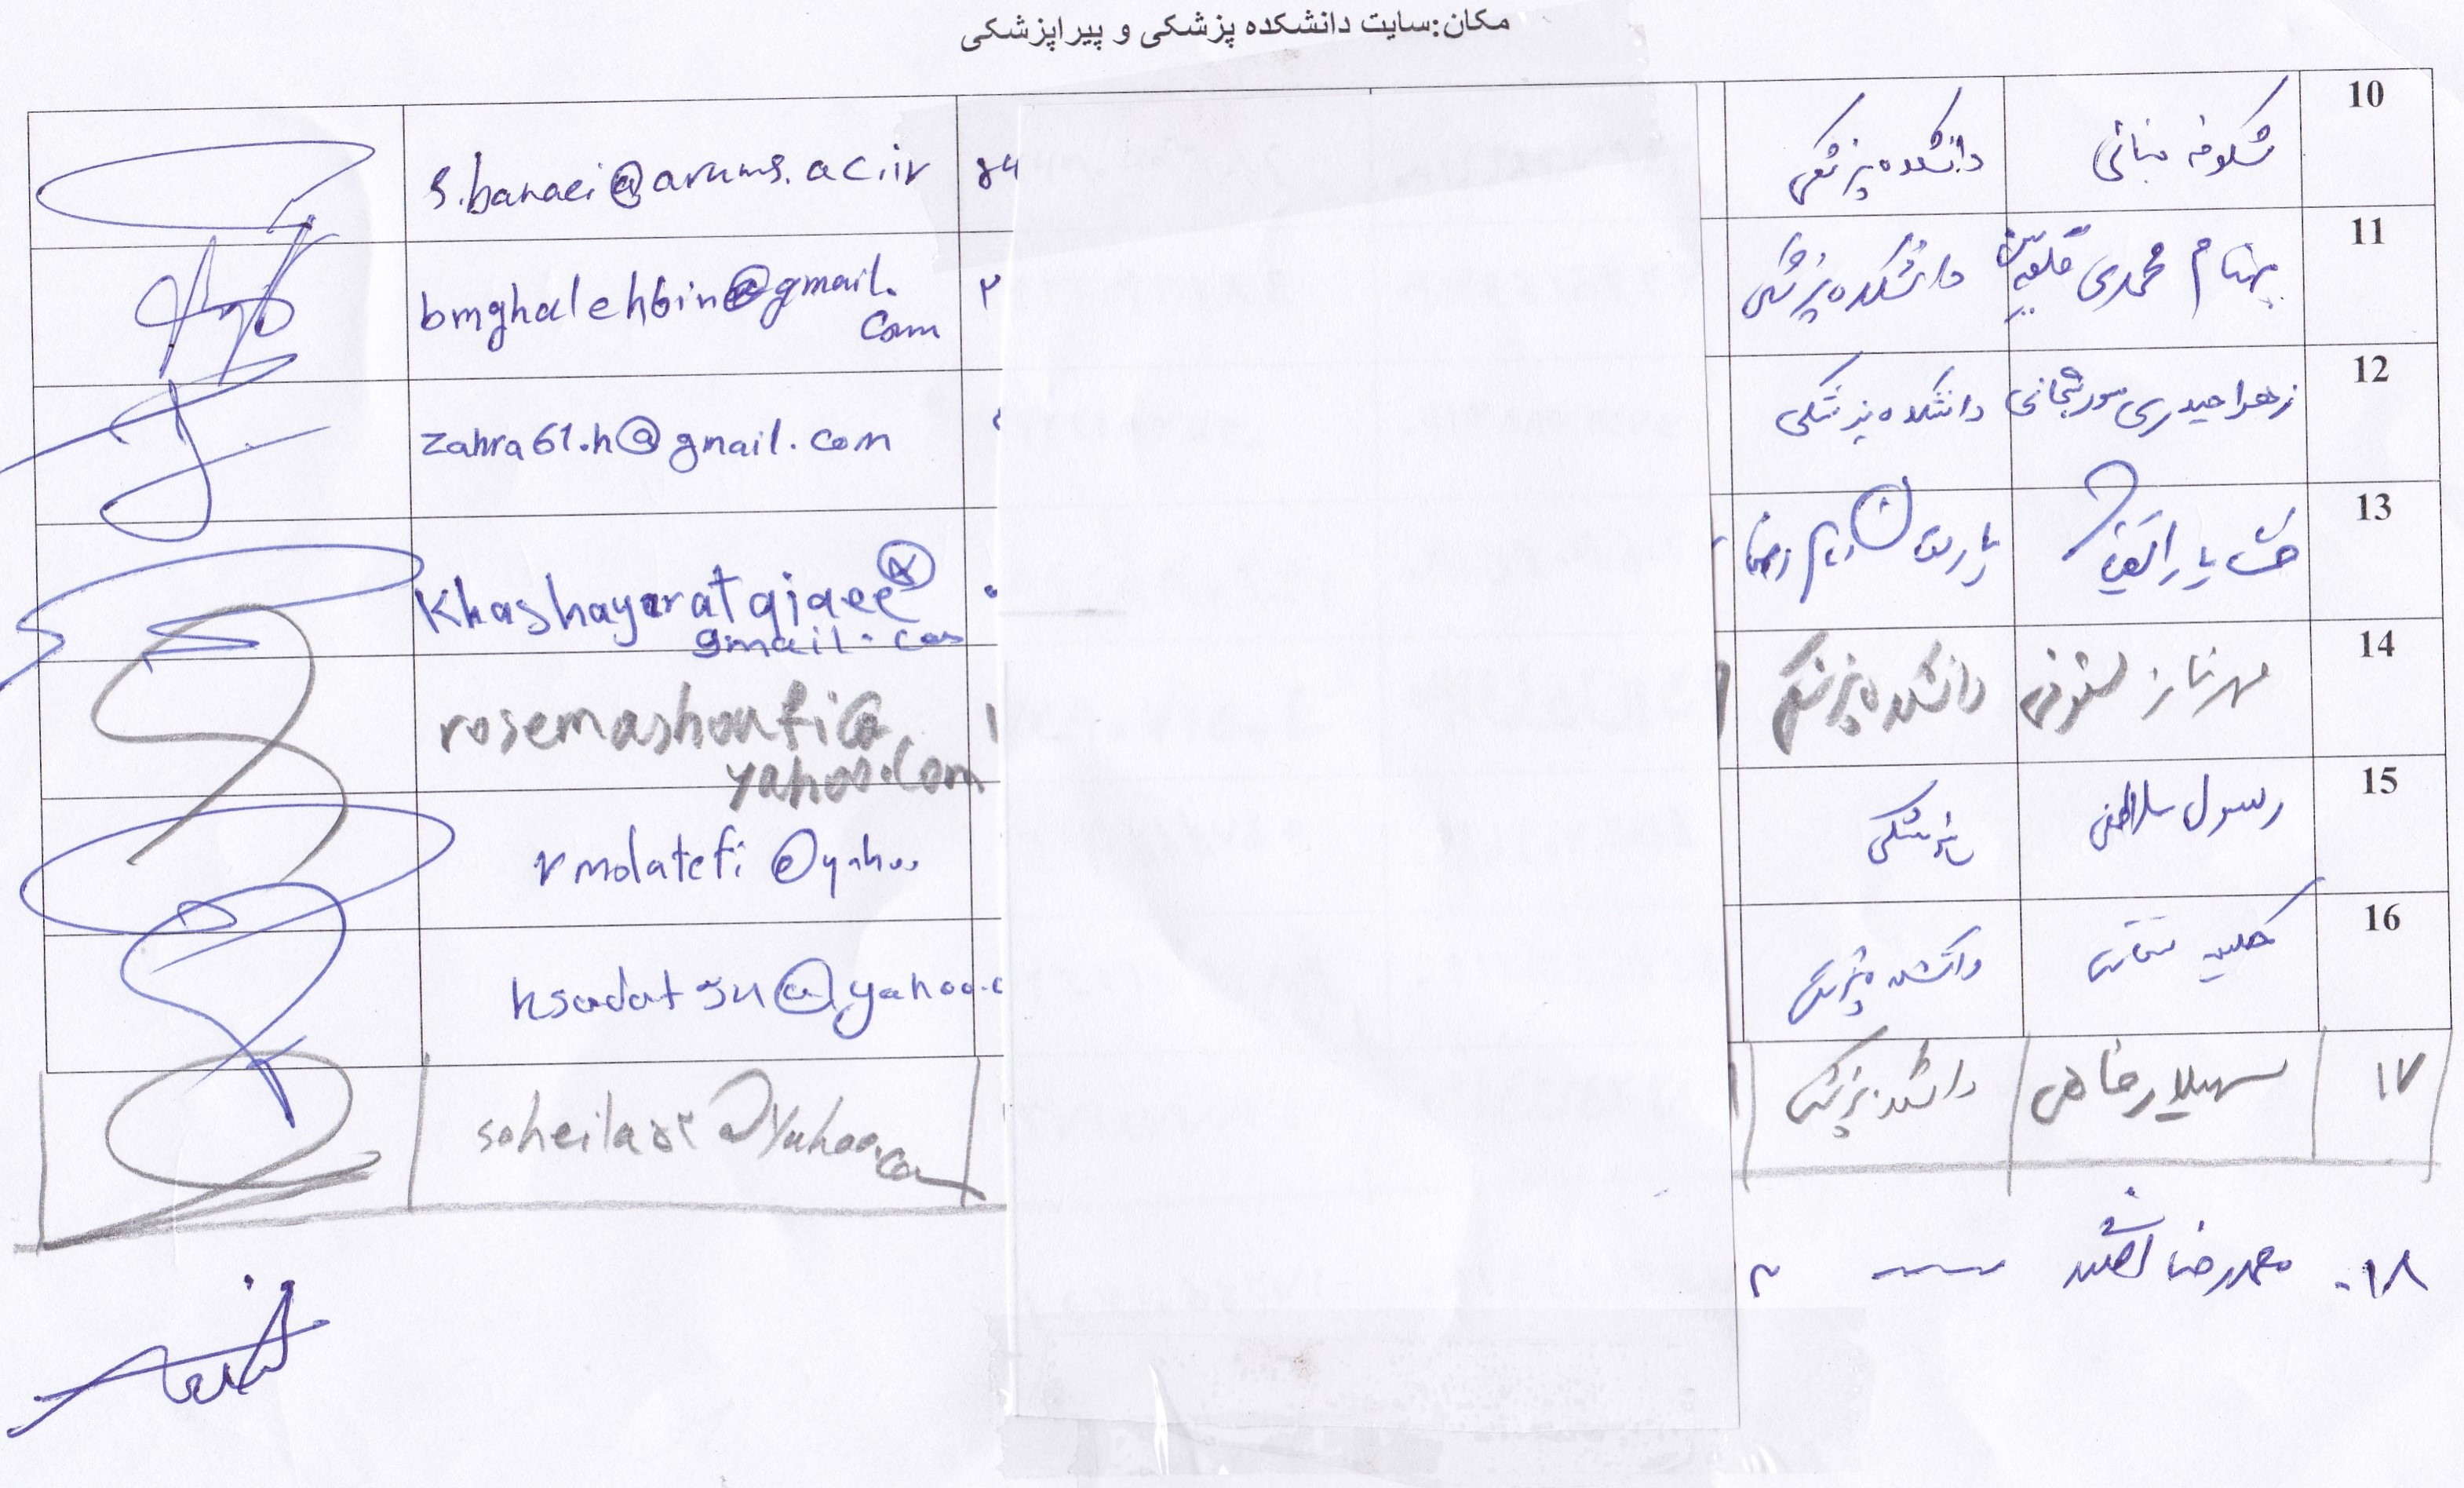 مکان:سایت دانشکده پزشکی و پیراپزشکی
10 شکوفه بنائی دانشکده پزشکی 84 s.banaei@arums.ac.ir
11 بهنام محمدی قلعه بین دانشکده پزشکی ۲ bmghalehbin@gmail.
com
12 زهرا حیدری دانشکده پزشکی zahra61.h@gmail.com
13 khashayaratqiaee@
gmail.com
14 مهرناز دانشکده پزشکی rosemashoufi@
yahoo.com
15 رسول پزشکی rmolatefi@yahoo
16 دانشکده پزشکی ksadat54@yahoo.c
۱۷ سهیلا رفاهی دانشکده پزشکی soheila@yahoo.com
۱۸. محمدرضا